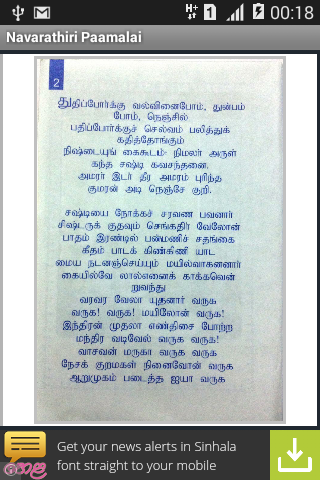 00:18
Navarathiri Paamalai
2
துதிப்போர்க்கு வல்வினைபோம், துன்பம்
போம், நெஞ்சில்
பதிப்போர்க்குச் செல்வம் பலித்துக்
கதித்தோங்கும்
நிஷ்டையுங் கைகூடம் நிமலர் அருள்
கந்த சஷ்டி கவசந்தனை.
அமரர் இடர் தீர அமரம் புரிந்த
குமரன் அடி நெஞ்சே குறி.
சஷ்டியை நோக்கச் சரவண பவனார்
சிஷ்டருக் குதவும் செங்கதிர் வேலோன்
பாதம் இரண்டில் பண்மணிச் சதங்கை
கீதம் பாடக் கிண்கிணி யாட
மைய நடனஞ்செய்யும் மயில்வாகனனார்
கையில்வே லால்எனைக் காக்கவென்
றுவந்து
வரவர வேலா யுதனார் வருக
வருக! வருக! மயிலோன் வருக!
இந்திரன் முதலா எண்திசை போற்ற
மந்திர வடிவேல் வருக வருக!
வாசவன் மருகா வருக வருக
நேசக் குறமகள் நினைவோன் வருக
ஆறுமுகம் படைத்த ஐயா வருக
Get your news alerts in Sinhala
font straight to your mobile